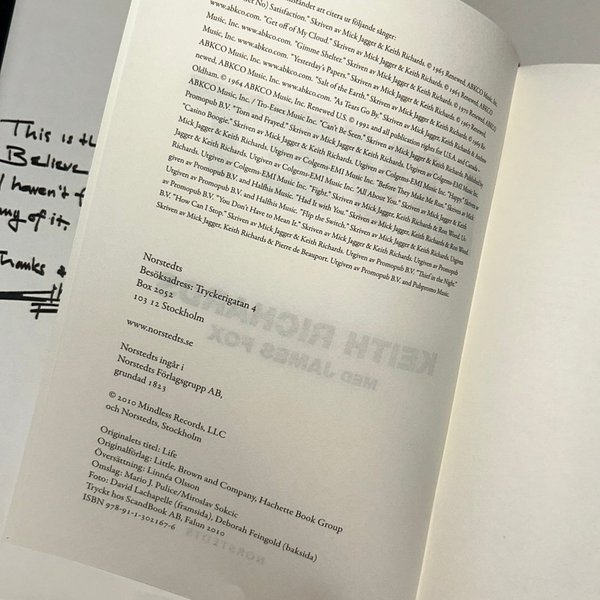 This is th
Believe
I haven't f
my of it.
Thanks
ståndet att citera ur följande sånger:
No) Satisfaction." Skriven av Mick Jagger & Keith Richards. © 1965 Renewed, ABKCO
www.abkco.com. "Get off of My Cloud." Skriven av Mick Jagger & Keith Richards. © 1965 Renewed, ABKCO
Music, Inc. www.abkco.com. "Gimme Shelter." Skriven av Mick Jagger & Keith Richards. © 1970 Renewed,
ABKCO Music, Inc. www.abkco.com. "Yesterday's Papers." Skriven av Mick Jagger & Keith Richards. © 1967 Renewed,
ABKCO Music, Inc. www.abkco.com. "Salt of the Earth." Skriven av Mick Jagger & Keith Richards. © 1969 Re-
newed, ABKCO Music, Inc. www.abkco.com. "As Tears Go By." Skriven av Mick Jagger, Keith Richards & Andrew
Oldham. © 1964 ABKCO Music, Inc. Renewed U.S. © 1992 and all publication rights for U.S.A. and Canada –
ABKCO Music, Inc. / Tro-Essex Music Inc. "Can't Be Seen." Skriven av Mick Jagger & Keith Richards. Published by
Promopub B.V. "Torn and Frayed." Skriven av Mick Jagger & Keith Richards. Utgiven av Colgems-EMI Music Inc.
"Casino Boogie." Skriven av Mick Jagger & Keith Richards. Utgiven av Colgems-EMI Music Inc. "Happy." Skriven av
Mick Jagger & Keith Richards. Utgiven av Colgems-EMI Music Inc. "Before They Make Me Run." Skriven av Mick
Jagger & Keith Richards. Utgiven av Colgems-EMI Music Inc. "All About You." Skriven av Mick Jagger & Keith
Richards. Utgiven av Colgems-EMI Music Inc. "Fight." Skriven av Mick Jagger, Keith Richards & Ron Wood. Ut-
given av Promopub B.V. and Halfhis Music. "Had It with You." Skriven av Mick Jagger, Keith Richards & Ron Wood.
Utgiven av Promopub B.V. and Halfhis Music. "Flip the Switch." Skriven av Mick Jagger & Keith Richards. Utgiven
av Promopub B.V. "You Don't Have to Mean It." Skriven av Mick Jagger & Keith Richards. Utgiven av Promopub
B.V. "How Can I Stop." Skriven av Mick Jagger & Keith Richards. Utgiven av Promopub B.V. "Thief in the Night."
Skriven av Mick Jagger, Keith Richards & Pierre de Beauport. Utgiven av Promopub B.V. and Pubpromo Music.
Norstedts
Besöksadress: Tryckerigatan 4
Box 2052
103 12 Stockholm
www.norstedts.se
Norstedts ingår i
Norstedts Förlagsgrupp AB,
grundad 1823
© 2010 Mindless Records, LLC
och Norstedts, Stockholm
Originalets titel: Life
Originalförlag: Little, Brown and Company, Hachette Book Group
Översättning: Linnéa Olsson
Omslag: Mario J. Pulice/Miroslav Sokcic
Foto: David Lachapelle (framsida), Deborah Feingold (baksida)
Tryckt hos ScandBook AB, Falun 2010
ISBN 978-91-1-302167-6
KEITH RICHARDS
MED JAMES FOX
NORSTEDTS